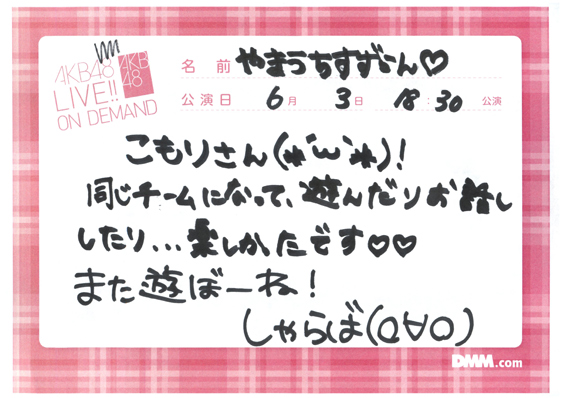 AKB48
AKB
48
LIVE!!
ON DEMAND
名前 やまうちすずらん♡
公演日 6月 3日 18:30 公演
こもりさん(*´ω`*)!
同じチームになって、遊んだりお話し
したり...楽しかったです♡♡
また遊ぼーね!
しゃらば(Q∀Q)
DMM.com